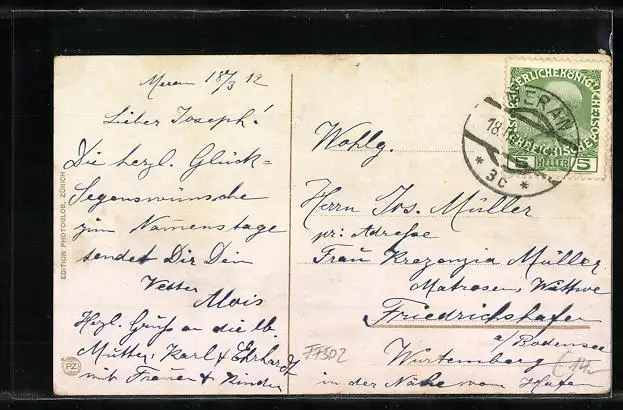 Meran 18/3 12
Lieber Joseph!
Die herzl. Glück-
Segenswünsche
zum Namenstage
sendet Dir Dein
Vetter
Alois
Herzl. Grüß an die lb.
Mutter, Karl & Ehrhardt
mit Frauen & Kinder
EDITION PHOTOGLOB, ZÜRICH
PZ
MERAN
18.
* 3c *
KAISERLICHE KÖNIGLICHE
ÖSTERREICHISCHE
5 HELLER 5
Wohlg.
Herrn Jos. Müller
pr: Adresse
Frau Krezenzia Müller
Matrosen, Wittwe
Friedrichshafen
a/Bodensee
Würtemberg
in der Nähe vom Hafen